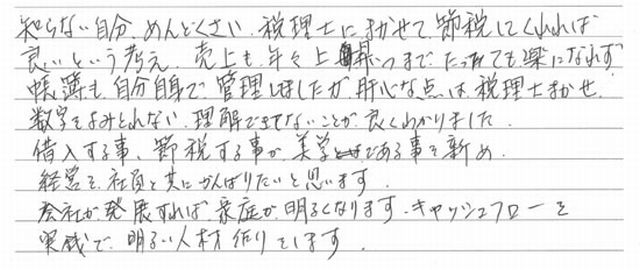 知らない自分、めんどくさい、税理士にまかせて、節税してくれれば
良いという考え、売上も年々上昇、いつまでたっても楽になれず
帳簿も自分自身で管理しましたが、肝心な点は税理士まかせ、
数字をよみとれない、理解できてないことが良くわかりました。
借入する事、節税する事が美学である事を新め、
経営を、社員と共にがんばりたいと思います。
会社が発展すれば、家庭が明るくなります。キャッシュフローを
実践で、明るい人材作りをします。